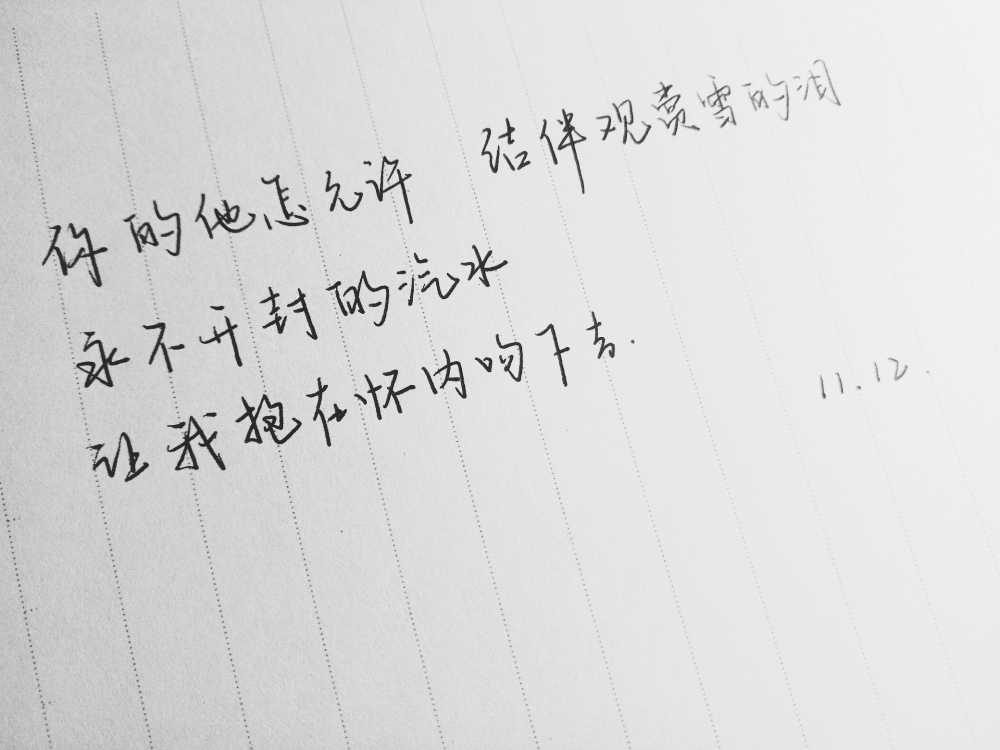 你的他怎允许 结伴观赏雪的泪
永不开封的汽水
让我抱在怀内吻下去.
11.12.